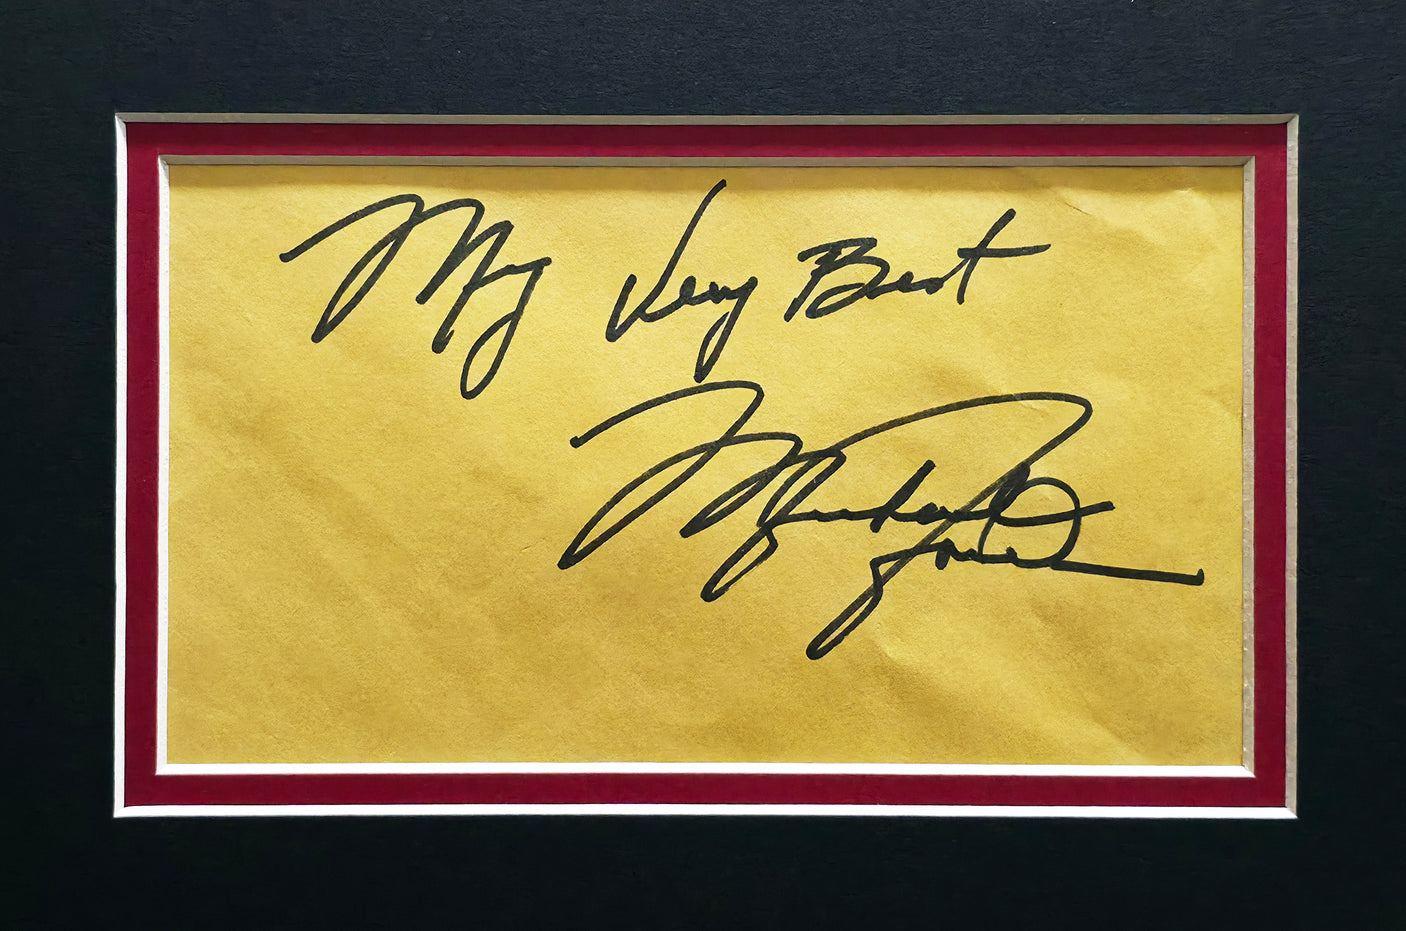 My Very Best
Michael Jones